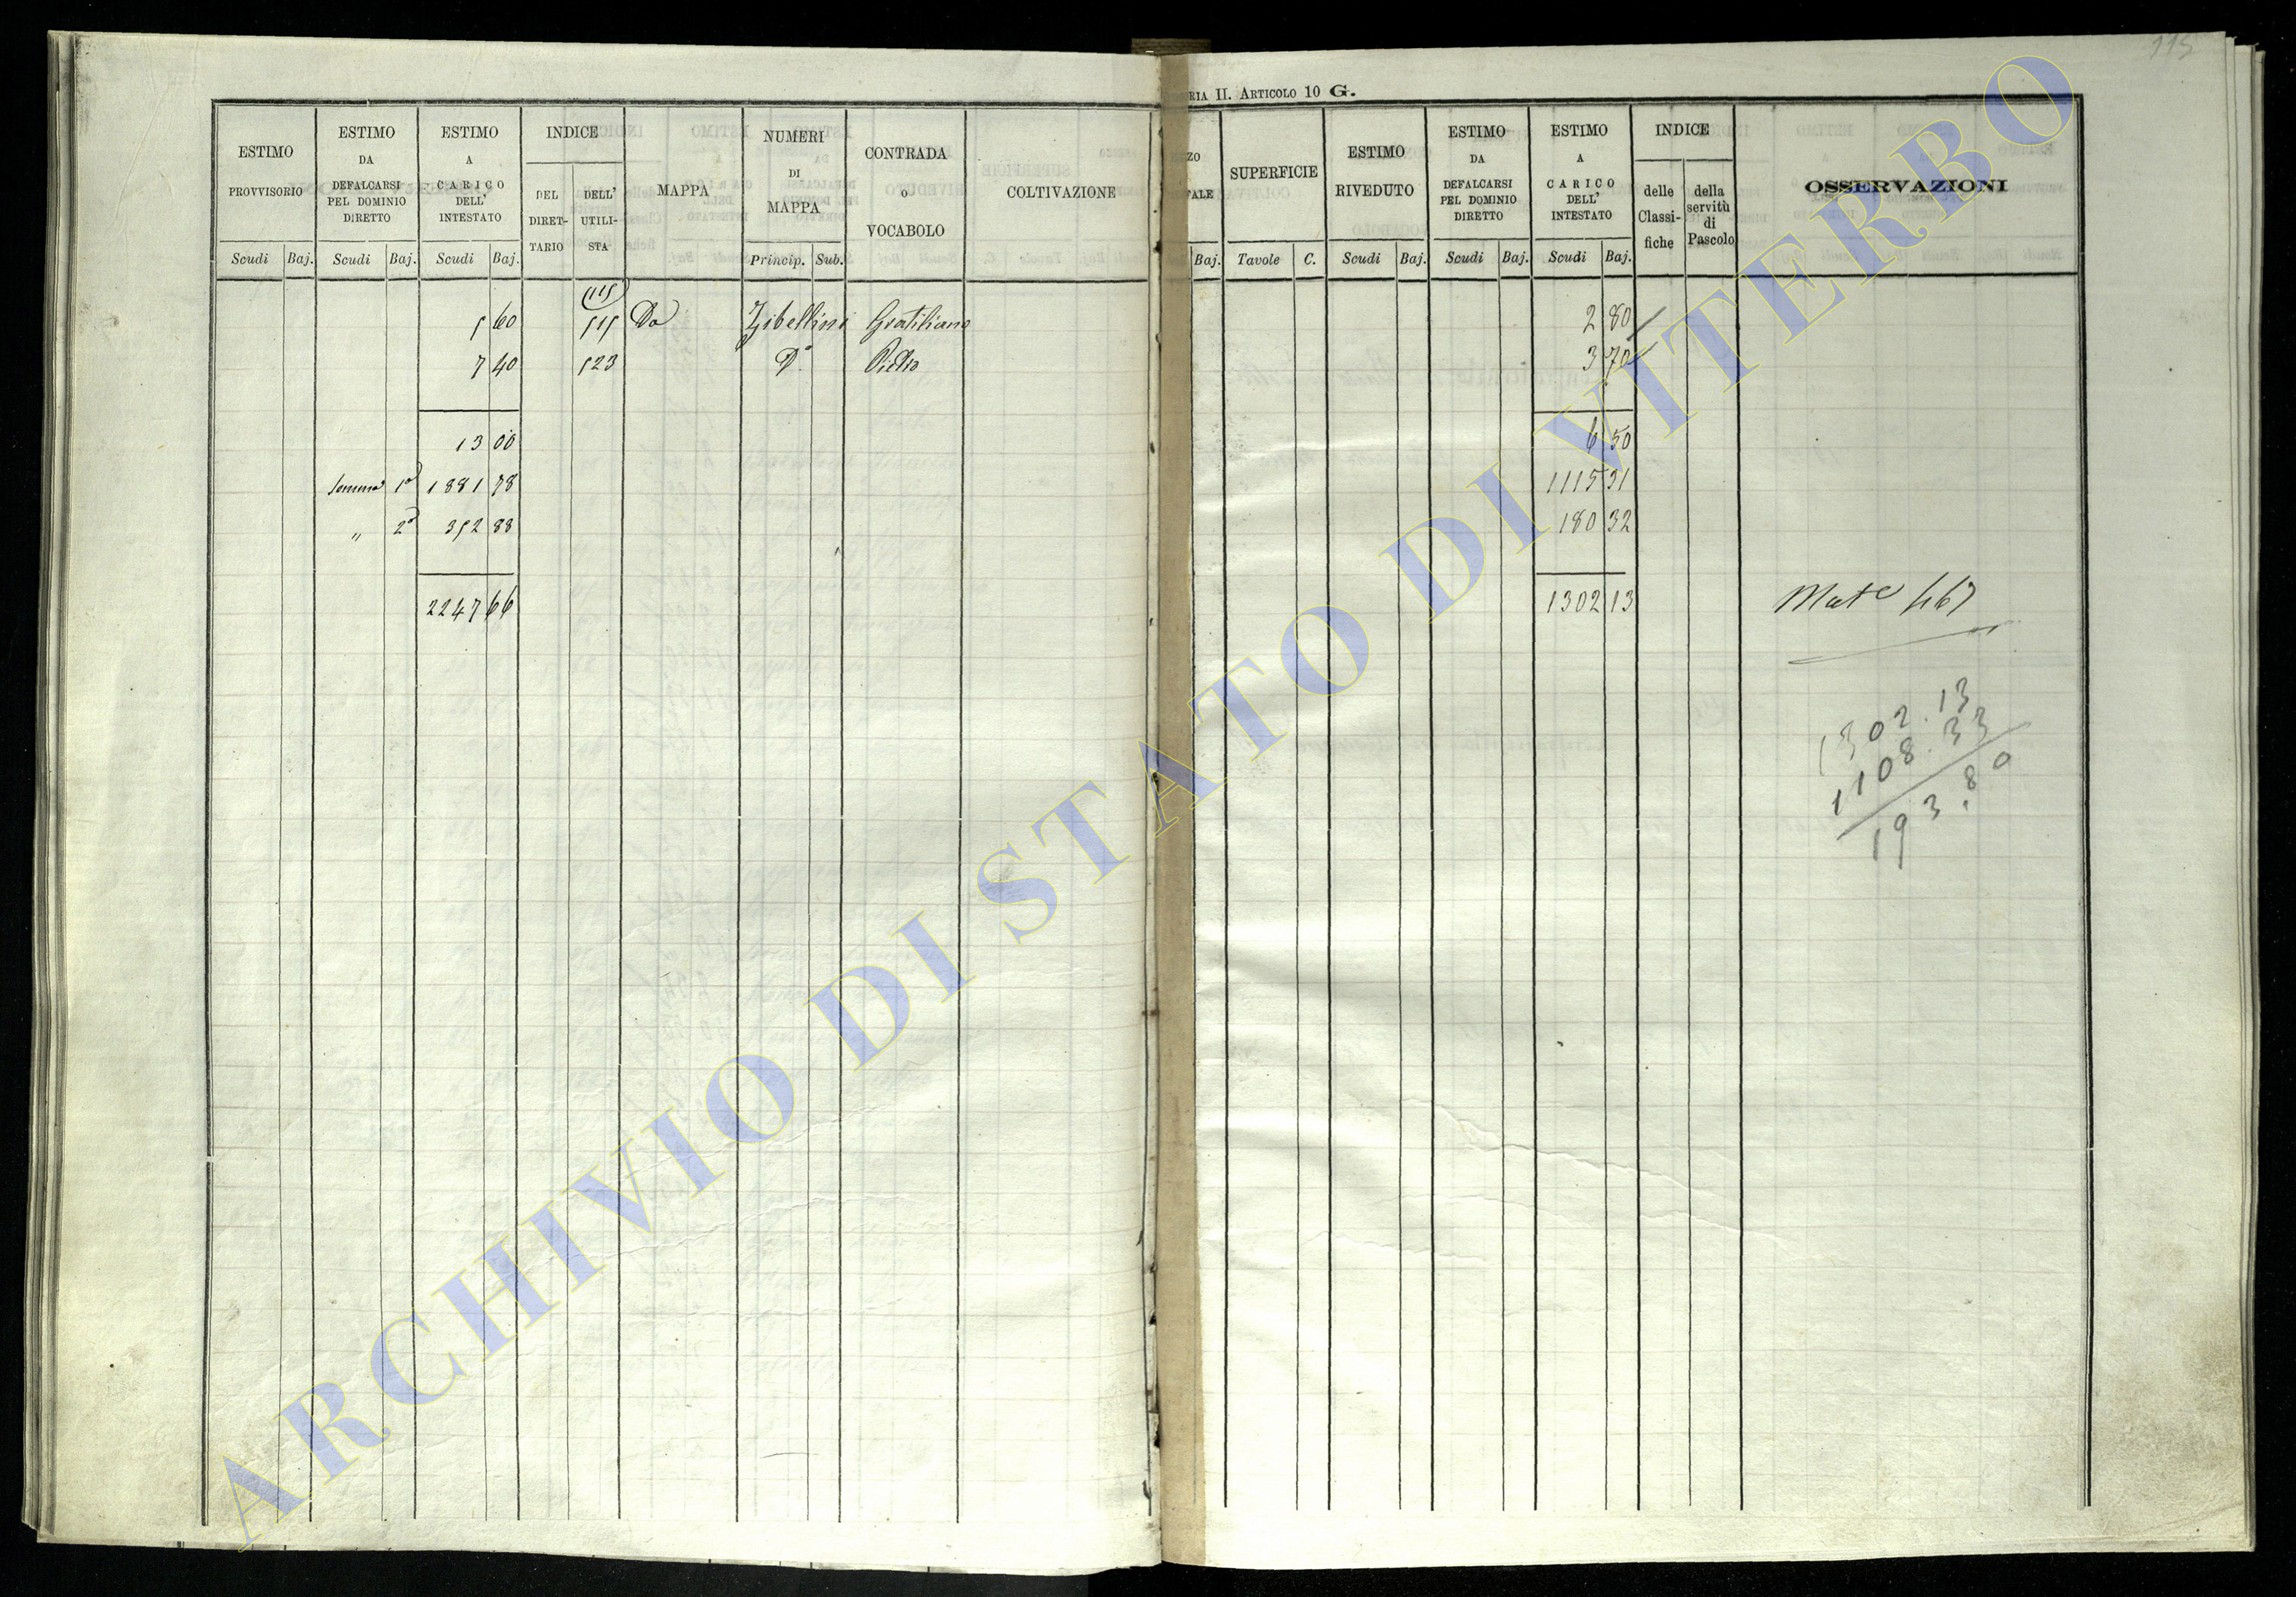 115
RIA II. ARTICOLO 10 G.
ESTIMO PROVVISORIO
Scudi Baj.
ESTIMO DA DEFALCARSI PEL DOMINIO DIRETTO
Scudi Baj.
ESTIMO A CARICO DELL' INTESTATO
Scudi Baj.
INDICE
DEL DIRET-TARIO
DELL' UTILI-STA
MAPPA
NUMERI DI MAPPA
Princip. Sub.
CONTRADA o VOCABOLO
COLTIVAZIONE
ZO
FALE
Baj.
SUPERFICIE
Tavole C.
ESTIMO RIVEDUTO
Scudi Baj.
ESTIMO DA DEFALCARSI PEL DOMINIO DIRETTO
Scudi Baj.
ESTIMO A CARICO DELL' INTESTATO
Scudi Baj.
INDICE
delle Classi-fiche
della servitù di Pascolo
OSSERVAZIONI
(115)
5 60 515 Da Zibellini Gratiliano 2 80
7 40 523 Dº Pietro 3 70
13 00 6 50
Somma 1ª 1881 78 1115 31
" 2ª 352 88 180 32
2247 66 1302 13
Mate 467
1302.13
1108.33
193.80
ARCHIVIO DI STATO DI VITERBO